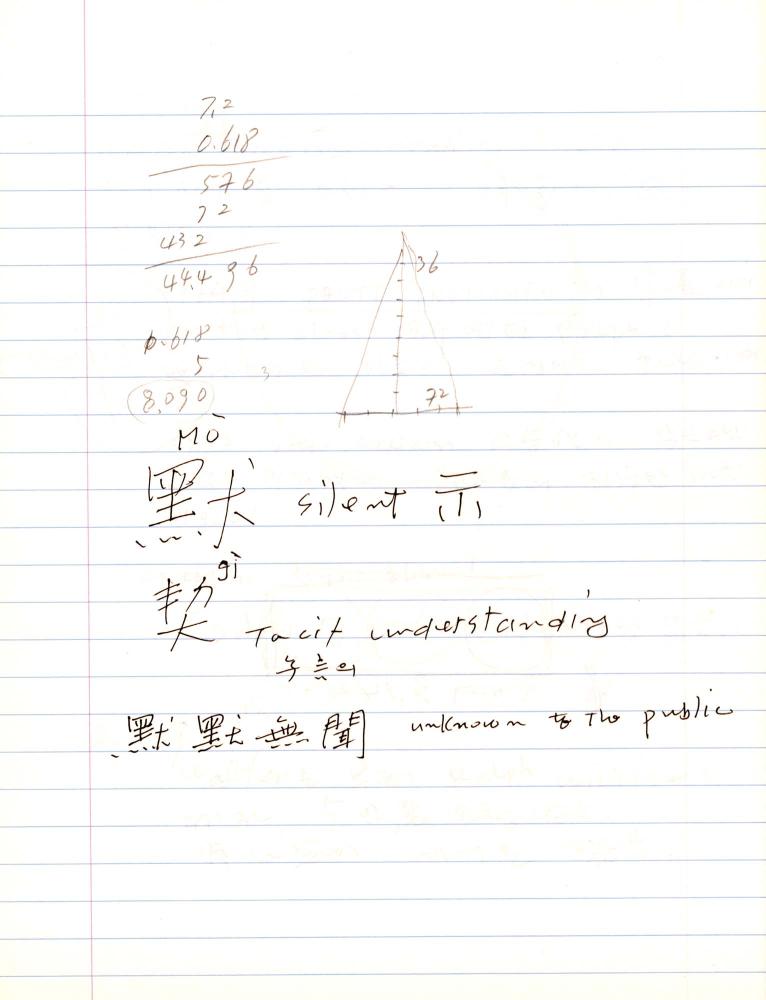 7.2
0.618
576
72
432
44.496
36
0.618
5
3
8.090
72
Mò
默 silent 示
契 qì
Tacit understanding
默默無聞 unknown to the public